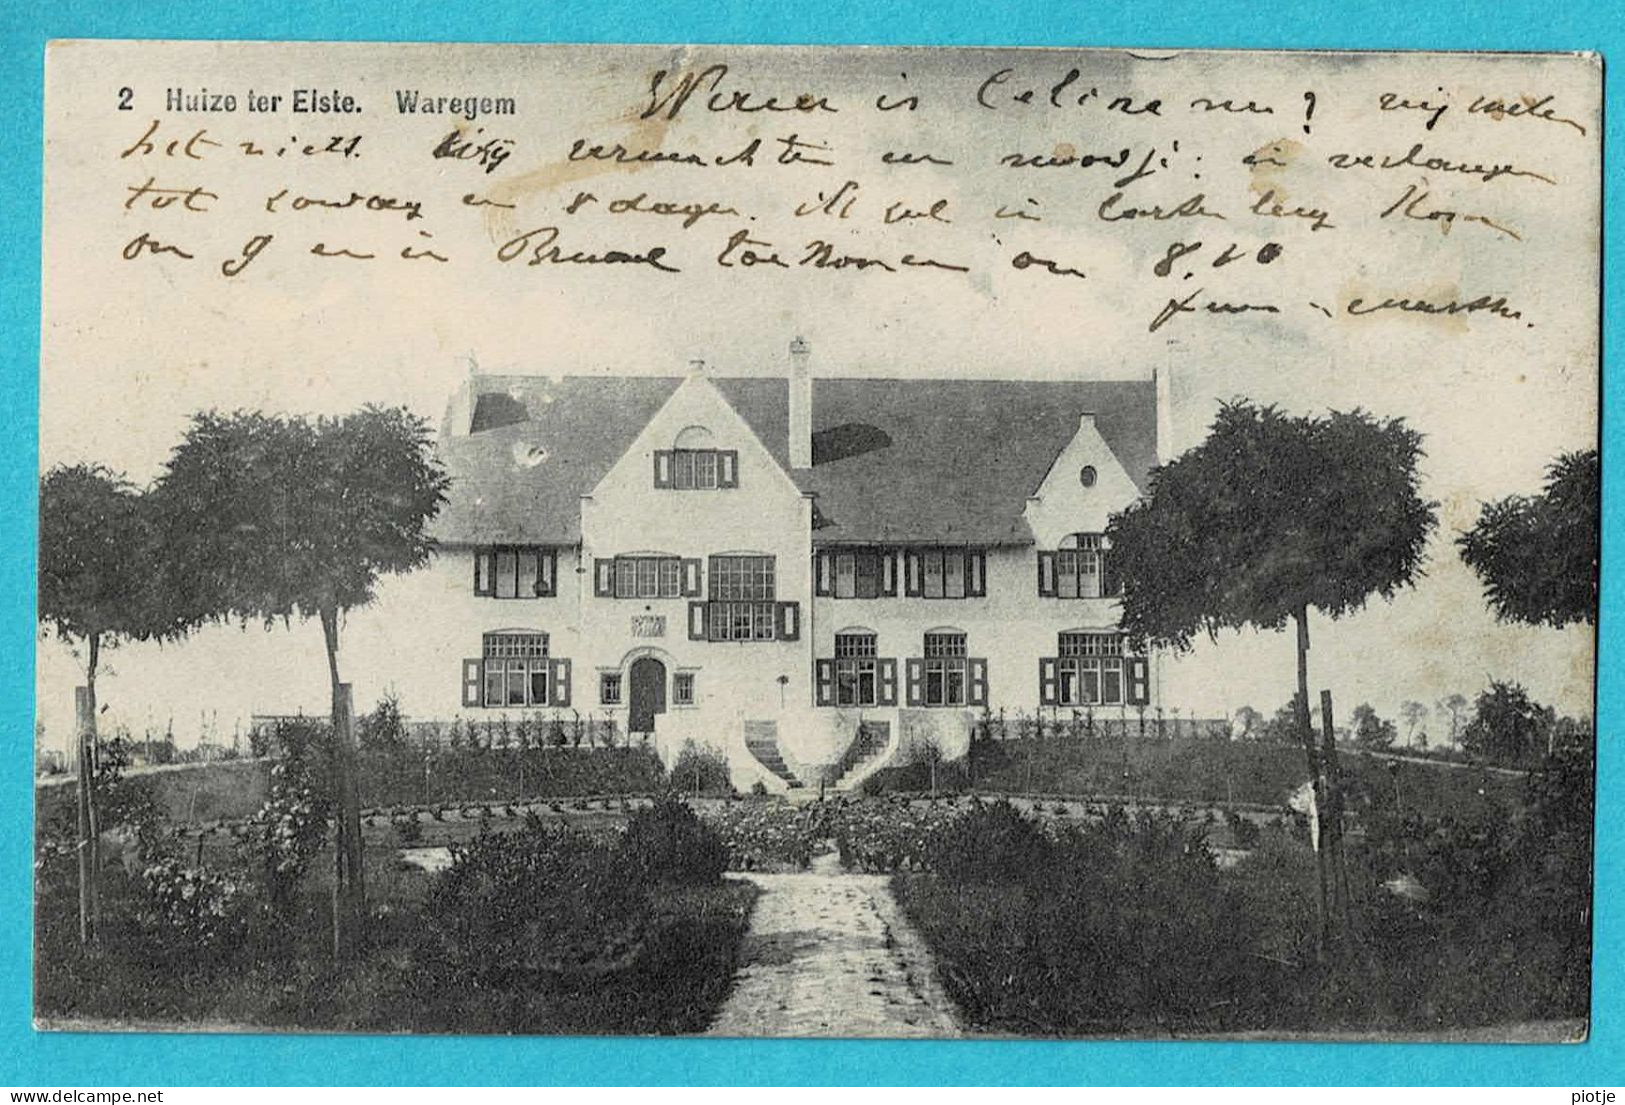 2 Huize ter Elste. Waregem
WVeer is Celine nu? wij weten
het niets. wij verwachten een woordje: in verlangen
tot zondag en 8 dagen. ik zal in
om 9 en in Brussel toekomen om 8.10
delcampe.net
piotje